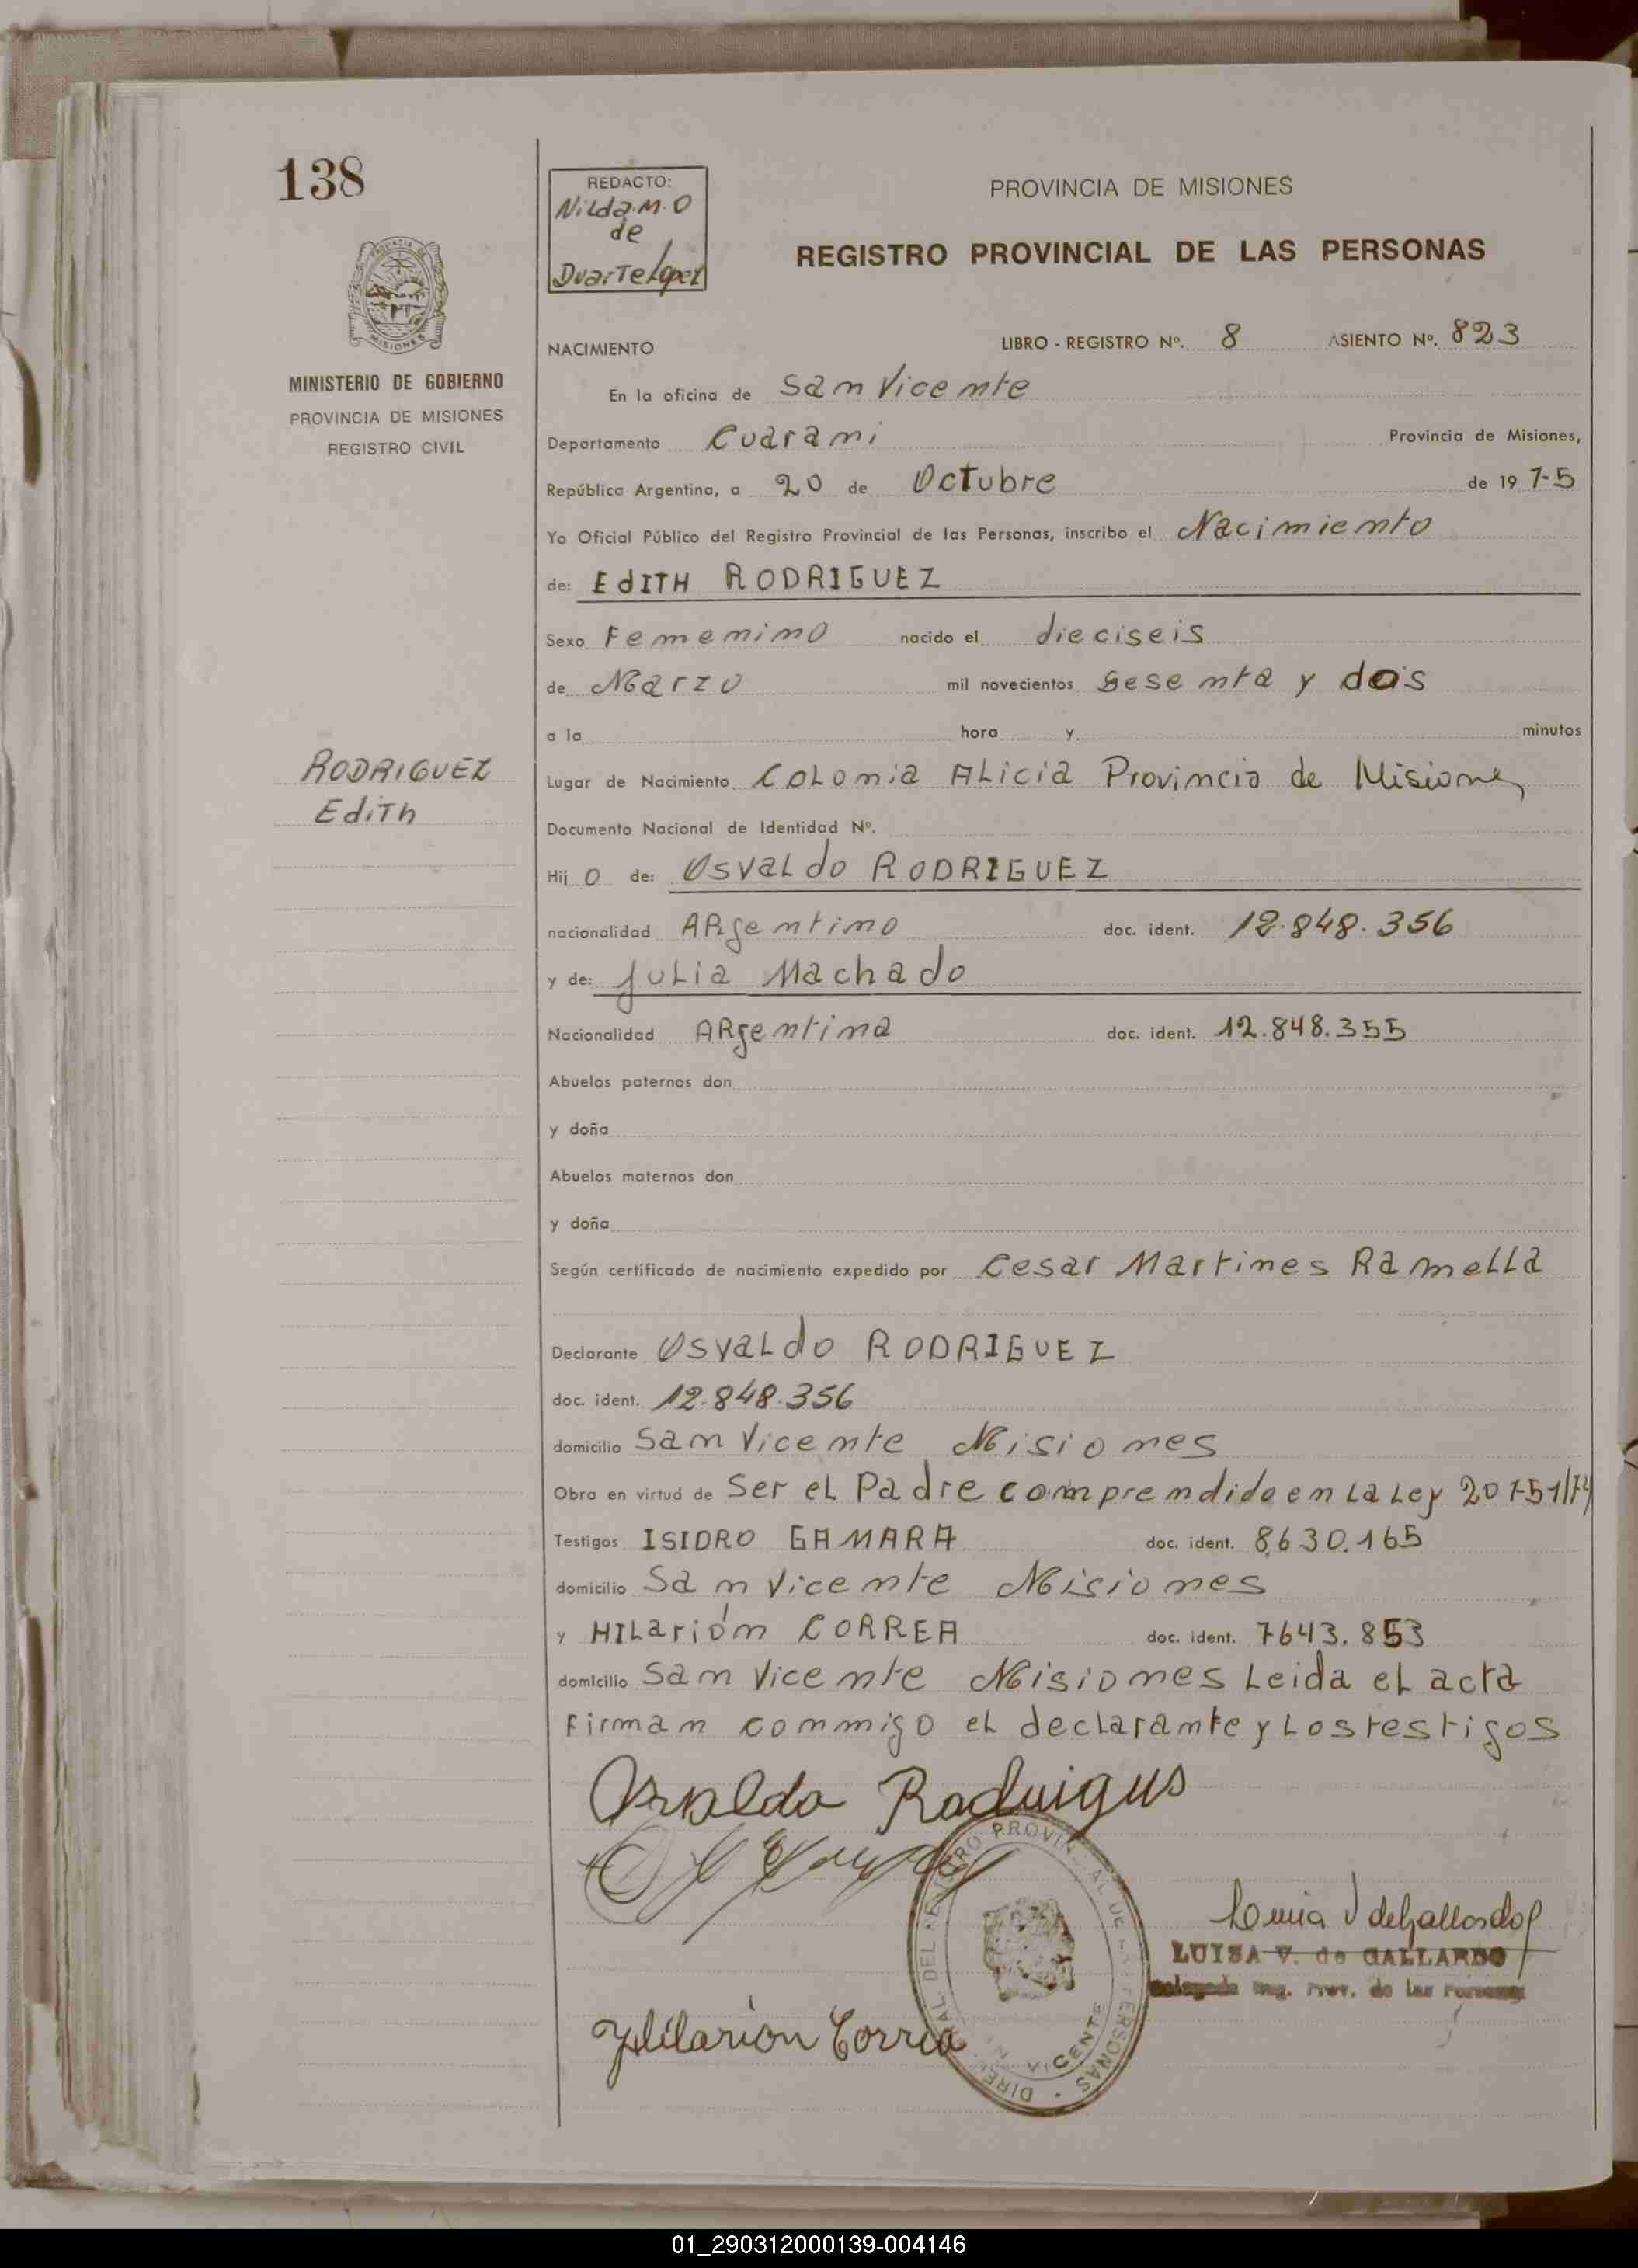 138
REDACTO:
Nilda.M.O
de
Duarte Lopez
PROVINCIA DE MISIONES
REGISTRO PROVINCIAL DE LAS PERSONAS
PROVINCIA DE
MISIONES
MINISTERIO DE GOBIERNO
PROVINCIA DE MISIONES
REGISTRO CIVIL
NACIMIENTO LIBRO - REGISTRO Nº. 8 ASIENTO Nº. 823
En la oficina de San Vicente
Departamento Cuarani Provincia de Misiones,
República Argentina, a 20 de Octubre de 19 75
Yo Oficial Público del Registro Provincial de las Personas, inscribo el Nacimiento
de: EdITH RODRIGUEZ
Sexo Femenino nacido el dieciseis
de Marzo mil novecientos sesenta y dos
a la hora y minutos
RODRIGUEZ
Edith
Lugar de Nacimiento Colonia Alicia Provincia de Misiones
Documento Nacional de Identidad Nº.
Hij O de: Osvaldo RODRIGUEZ
nacionalidad ARgentino doc. ident. 12.848.356
y de: Julia Machado
Nacionalidad ARgentina doc. ident. 12.848.355
Abuelos paternos don
y doña
Abuelos maternos don
y doña
Según certificado de nacimiento expedido por Cesar Martines Ramella
Declarante Osvaldo RODRIGUEZ
doc. ident. 12.848.356
domicilio San Vicente Misiones
Obra en virtud de Ser el Padre comprendido en la Ley 20751/74
Testigos ISIDRO GAMARA doc. ident. 8,630.165
domicilio San Vicente Misiones
y HILarión CORREA doc. ident. 7643.853
domicilio San Vicente Misiones Leida el acta
Firman conmigo el declarante y los testigos
Osvaldo Rodrigus
DIREC AL DEL REGISTRO PROVIN AL DE LAS PERSONAS
N VICENTE
Luisa V de Gallardo
LUISA V. de GALLARDO
Delegada Reg. Prov. de las Personas
Hilarion Correa
01_290312000139-004146